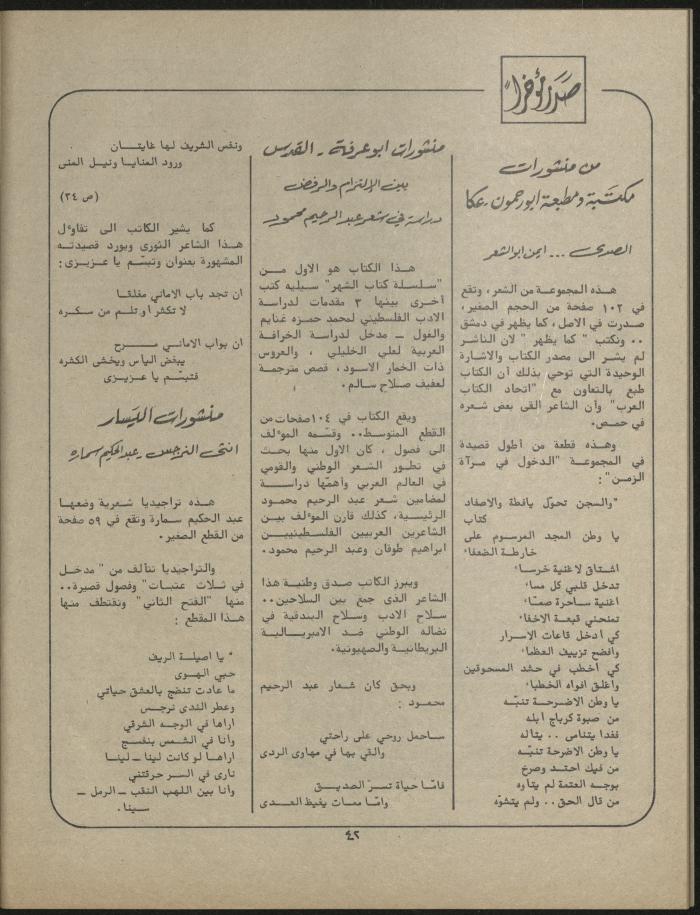 صدر مؤخراً
من منشورات
مكتبة ومطبعة ابو رحمون - عكا
الصدى ... ايمن ابو الشعر
هـذه المجموعـة من الشعر، وتقع
في ١٠٢ صفحة من الحجم الصغير،
صدرت في الاصل، كما يظهر في دمشق
.. ونكتب " كما يظهر " لان الناشر
لم يشر الى مصدر الكتاب والاشارة
الوحيدة التي توحي بذلك أن الكتاب
طبع بالتعاون مع "اتحاد الكتاب
العرب" وأن الشاعر القى بعض شعره
في حمـص.
وهـذه قطعة من أطول قصيدة
في المجموعـة "الدخول في مـرآة
الزمـن":
"والسجن تحوّل يافطة والاصفاد
كتاب
يا وطن المجد المرسوم على
خارطة الضعفاء
اشتاق لاغنية خرسـاء
تدخل قلبي كل مساء
اغنية ساحرة صمّاء
تمنحني قبعـة الاخفاء
كي ادخل قاعات الاسـرار
وافضح تزييف العظماء
كي أخطب في حشد المسحوقين
واغلق افواه الخطباء
يا وطن الاضرحـة تنبّـه
من صبوة كرباج أبله
فغدا يتنامى .. يتأله
يا وطن الاضرحة تنبّـه
من فيك احتـد وصرخ
بوجـه العتمة لم يتأوه
من قال الحق .. ولم يتشوّه
منشورات ابو عرفة - القدس
بين الإلتزام والرفض
دراسة في شعر عبد الرحيم محمود
هـذا الكتاب هو الاول مـن
"سلسلة كتاب الشهر" سيليه كتب
أخـرى بينها ٣ مقدمات لدراسة
الادب الفلسطيني لمحمد حمزه غنايم
والغول ــ مدخل لدراسة الخرافة
العربية لعلي الخليلي ، والعروس
ذات الخمار الاسـود، قصص مترجمـة
لعفيف صـلاح سـالم.
ويقع الكتاب في ١٠٤ صفحات من
القطع المتوسـط.. وقسّمه المؤلف
الى فصول ، كان الاول منها بحث
في تطور الشعر الوطني والقومي
في العالم العربي وأهمّها دراسـة
لمضامين شعر عبد الرحيم محمـود
الرئيسية، كذلك قارن المؤلف بيـن
الشاعرين العربيين الفلسطينييـن
ابراهيم طوقان وعبد الرحيم محمود.
ويبرز الكاتب صـدق وطنيـة هذا
الشاعر الذي جمع بين السلاحين..
سـلاح الادب وسلاح البندقية في
نضاله الوطني ضـد الامبريـاليـة
البريطانيـة والصهيونية.
وبحق كان شـعار عبد الرحيم
محمـود :
سـاحمل روحي على راحتي
والقي بها في مهاوي الردى
فامّـا حياة تسـرّ الصديـق
وامّـا ممـات يغيظ العـدى
ونفس الشريف لـها غايتـان
ورود المنـايا ونيـل المنى
(ص ٣٤)
كما يشير الكاتب الى تفاؤل
هـذا الشاعر الثوري ويورد قصيدتـه
المشهورة بعنوان وتبسّم يا عـزيـزي:
ان تجد باب الاماني مغلقـا
لا تكشر أو تلـم من سـكره
ان بواب الامانـي مـــرح
يبغض اليأس ويخشى الكشره
فتبسّـم يا عـزيـزي
منشورات اليسار
انثى النرجس - عبد الحكيم سماره
هـذه تراجيديا شـعرية وضعهـا
عبد الحكيم سـمارة وتقع في ٥٩ صفحة
من القطع الصغير.
والتراجيديا تتألف من "مدخـل
في ثـلاث عتبـات" وفصول قصيرة..
منها "الفتح الثاني" ونقتطف منهـا
هـذا المقطع :
" يا اصيلـة الريف
حبي الهـوى
ما عادت تنضج بالعشق حياتي
وعطر الندى نرجـس
اراها في الوجـه الشرقي
وأنا في الشـمس بنفسـج
اراهـا لو كانت لينـا ــ لينـا
ناري في السـر حرقتني
وأنا بين اللهب النقب ــ الرمل ــ
سـينا.
٤٢